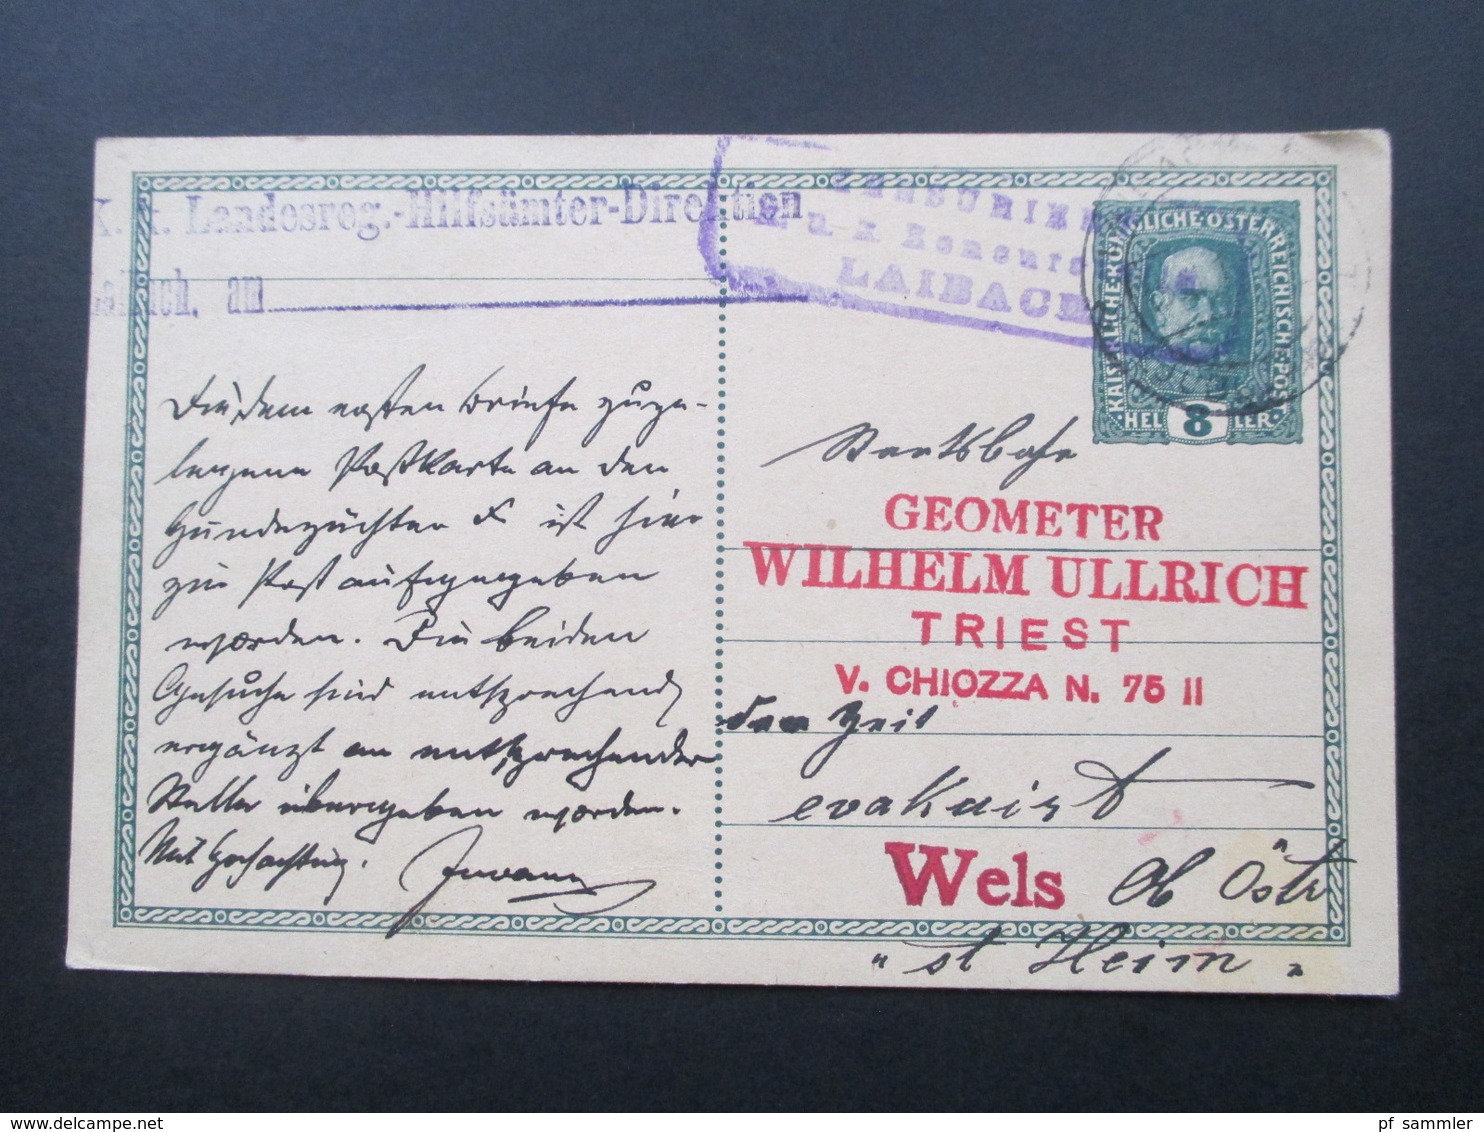 K. k. Landesreg.-Hilfsämter-Direktion
Laibach, am
ZENSURIERT
K. u. k. Zensurs
LAIBACH
KAISERLICHE·KÖNIGLICHE·ÖSTERREICHISCHE·POST
HELLER
8
Die dem ersten Briefe zuge-
legene Postkarte an den
Hundezüchter F ist hier
zur Post aufgegeben
worden. Die beiden
Gesuche sind entsprechend
ergänzt an entsprechender
Stelle übergeben worden.
Mit Hochachtung.
GEOMETER
WILHELM ULLRICH
TRIEST
V. CHIOZZA N. 75 II
der Zeit
evakuirt
Wels Ob Östr
" st Heim "
pf_sammler